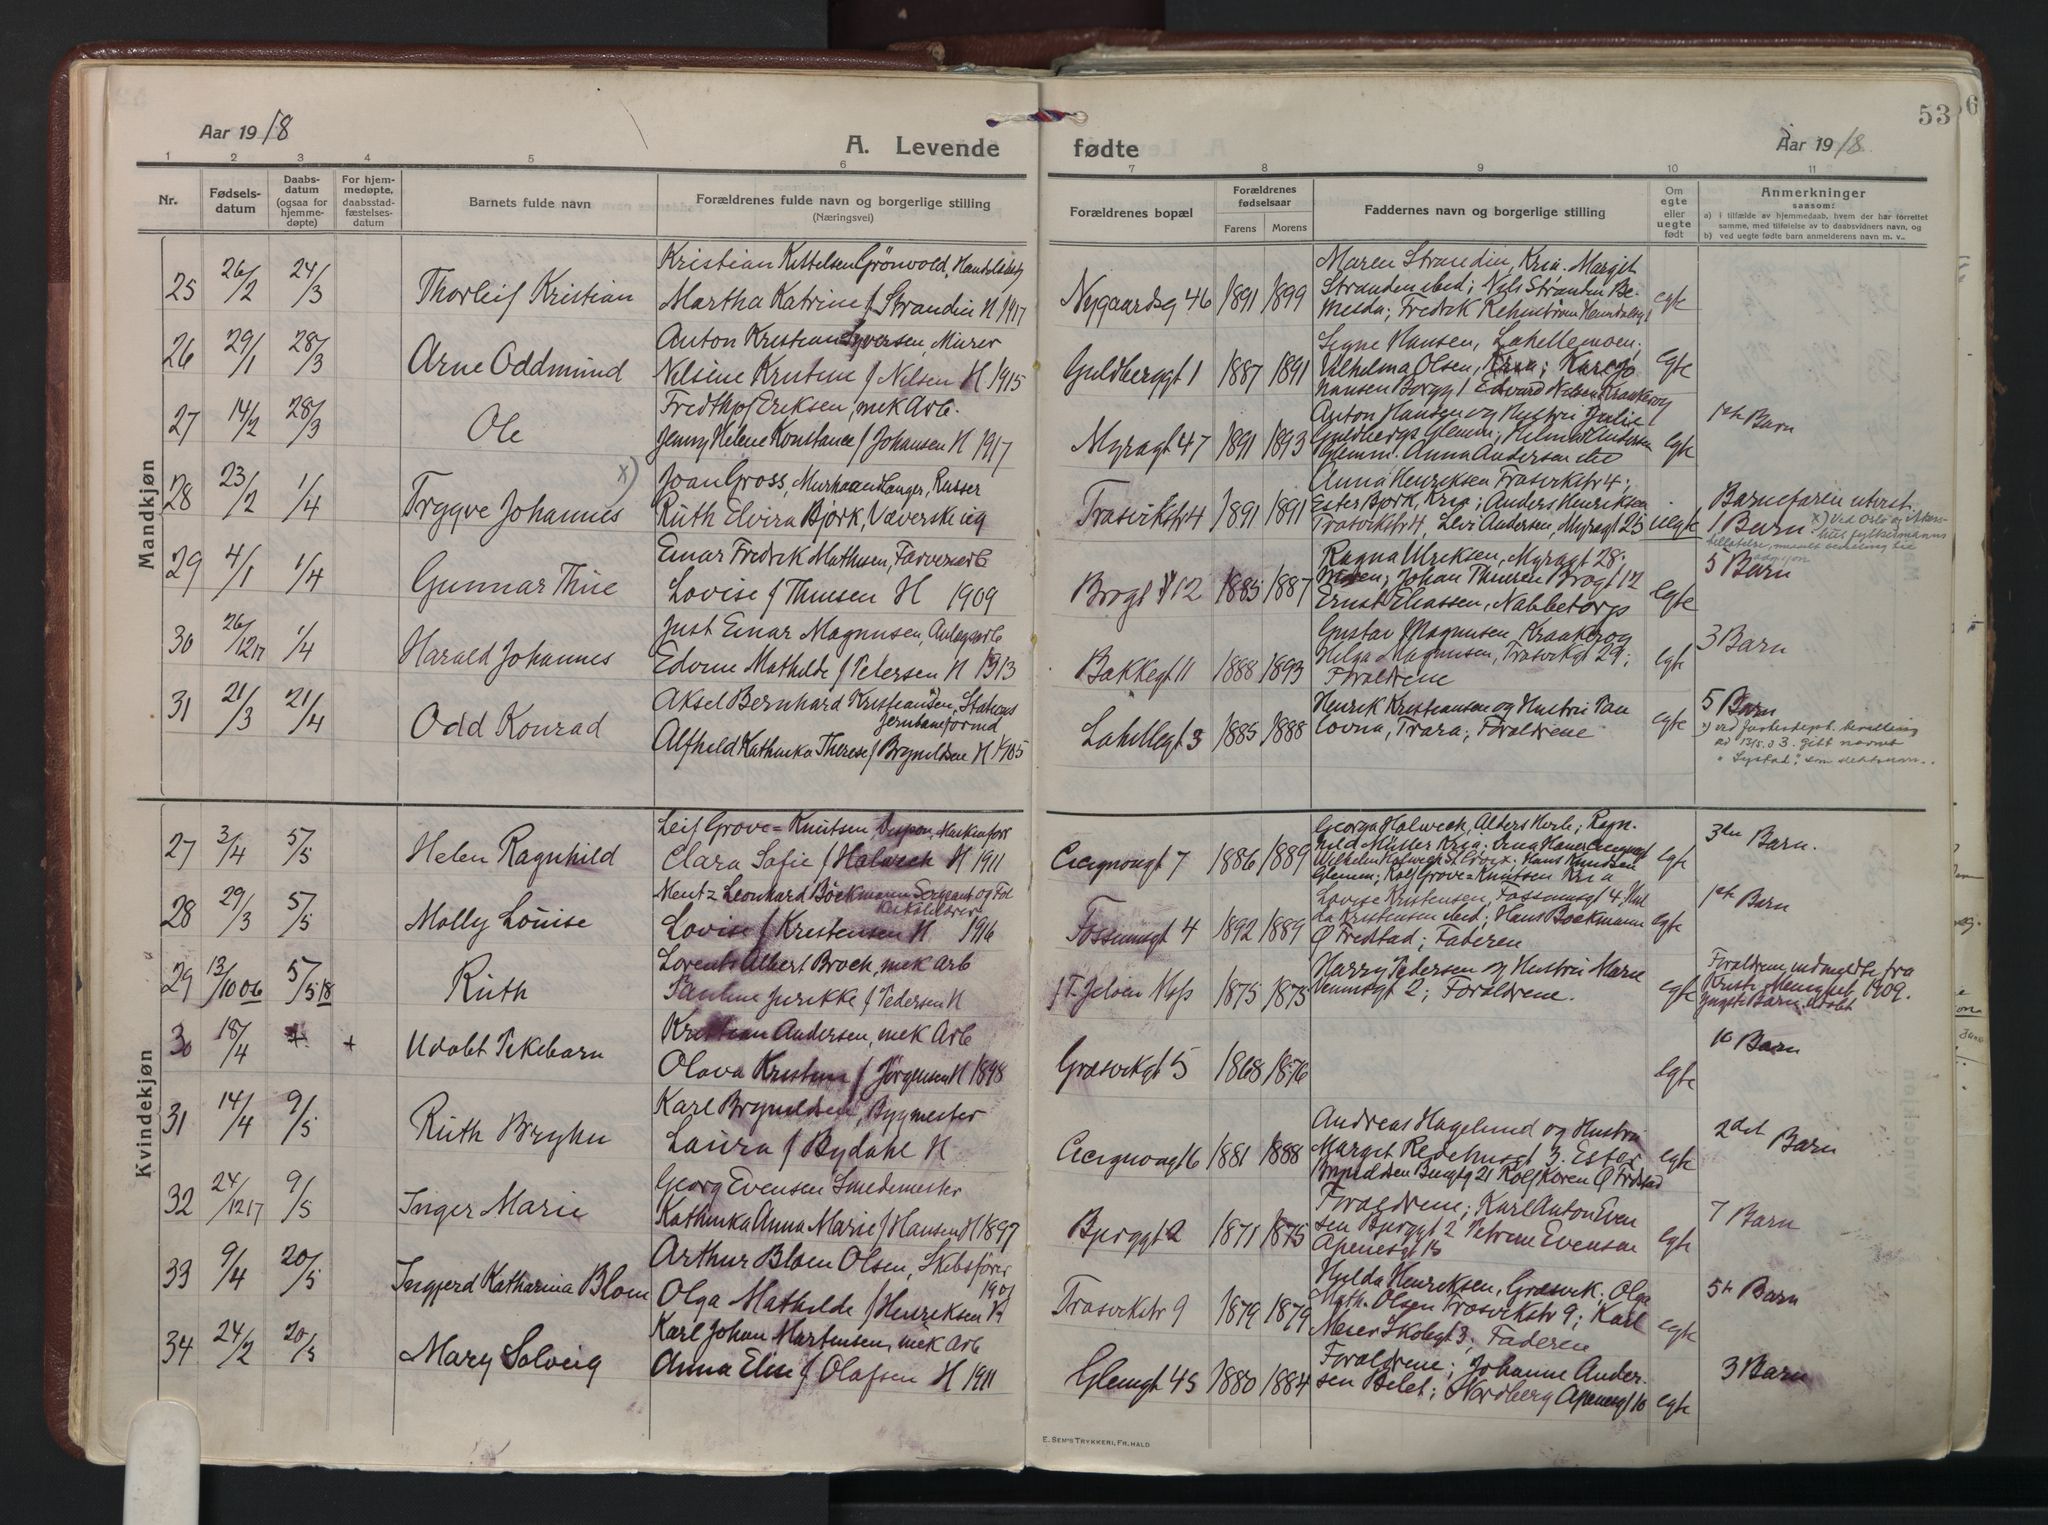 Aar 1918
A. Levende
fødte
Aar 1918
53
6
1 2 3 4 5 6 7 8 9 10 11
Nr.
Fødsels-
datum
Daabs-
datum
(ogsaa for
hjemme-
døpte)
For hjem-
medøpte,
daabsstad-
fæstelses-
datum
Barnets fulde navn
Forældrenes fulde navn og borgerlige stilling
(Næringsvei)
Forældrenes bopæl
Forældrenes
fødselsaar
Farens Morens
Faddernes navn og borgerlige stilling
Om
egte
eller
uegte
født
Anmerkninger
saasom:
a) i tilfælde av hjemmedaab, hvem der har forrettet
samme, med tilføielse av to daabsvidners navn, og
b) ved uegte fødte barn anmelderens navn m. v..
Mandkjøn
25 26/2 24/3 Thorleif Kristian
Kristian Kittelsen Grönvold,
Martha Katrine f Strandin H 1917
Nygaardsg 46 1891 1899
Maren Strandin, Kria. Margit
Stranden ibd; Nils Stranden
Fredrik
egte
26 29/1 28/3 Arne Oddmund
Anton Kristian Syversen, Murer
Nilsine Kristine f Nilsen H 1915
Guldberggt 1 1887 1891
Signe Hansen, Lahellemoen;
Vilhelma Olsen, Kria; Kare Jo
hansen Borgg 1 Edvard Nilsen Kraakerøy
egte
27 14/2 28/3 Ole
Fredthjof Eriksen, mek Arb.
Jenny Helene Konstance f Johansen H 1917
Myragt 47 1891 1893
Anton Hansen og Hustru Julie
Guldbergs Glemm; Helmer Andersen
Glemm. Anna Andersen ibd
egte
1ste Barn
28 23/2 1/4 Trygve Johannes x)
Joan Gross, Murhaandlanger, Russer
Ruth Elvira Bjørk, Væverske ug
Trosvikstr 4 1891 1891
Anna Henriksen Trosvikstr 4;
Ester Bjørk, Kria; Anders Henriksen
Trosvikstr 4, Levi Andersen, Myragt 25
uegte
Barnefaren uteret.
1 Barn x) Ved Oslo og Akers-
hus fylkesmanns
29 4/1 1/4 Gunnar Thue
Einar Fredrik Mathisen, Farverarb
Lovise f Thuesen H 1909
Brogt 12 1885 1887
Ragna Ulriksen, Myragt 28;
Johan Thuesen Brogt 12
Ernst Eliassen, Nabbetorp
egte
5 Barn
30 26/12 17 1/4 Harald Johannes
Just Einar Magnusen, Anlegsarb
Edvine Mathilde f Petersen H 1913
Bakkegt 11 1888 1893
Gustav Magnusen, Kraakerøy
Helga Magnusen, Trosvikgt 29;
Forældrene
egte
3 Barn
31 21/3 21/4 Odd Konrad
Aksel Bernhard Kristiansen, Statens
Jernbaneformd
Alfhild Kathinka Therese f Brynildsen H 1905
Lahellegt 3 1885 1888
Henrik Kristiansen og Hustru Pau
lovna, Trara; Forældrene
egte
5 Barn
x) ved Justisdept. bevilling
av 13/5 23. gitt navnet
"Systad", som slektsnavn.
Kvindekjøn
27 3/4 5/5 Helen Ragnhild
Leif Grove=Knutsen, Dispon. Maskinforr
Clara Sofie f Holweck H 1911
Cicignongt 7 1886 1889
Georga Holweck, Alders Hvile; Ragn-
hild Müller Kria; Hans Knudsen
Glemm; Rolf Grove=Knutsen Kria
egte
3die Barn.
28 29/3 5/5 Molly Louise
Mentz Leonhard Böckmann Sersjant og Tol
Lovise f Kristensen H 1916
Fossumsgt 4 1892 1889
Lovise Kristensen, Fossumsgt 4, Hul
da Kristensen ibid; Hans Bockmann
Ø Fredstad; Faderen
egte
1ste Barn
29 13/10 06 5/5 18 Ruth
Lorents Albert Broch, mek Arb
Pauline Jurikke f Pedersen H
St. Jeloen Moss 1875 1873
Harry Pedersen og Hustru Marie
Venusgt 2; Forældrene.
egte
Forældrene indmeldte fra
Kristi Menighet 1909.
yngste Barn udøbt
30 18/4 + + Udøbt Pikebarn
Kristian Andersen, mek Arb
Olava Kristine f Jörgensen H 1898
Græsvikgt 5 1868 1876
egte
10 Barn
31 14/4 9/5 Ruth Bryhn
Karl Brynildsen, Bygmester
Laura f Bydahl H
Cicignongt 6 1881 1888
Andreas Hagelund og Hustru
Margit Redehusgt 3. Ester
Brynildsen Burgtg 21 Rolf Koren Ø Fredstad
egte
2det Barn
32 24/12 17 9/5 Inger Marie
Georg Evensen Smedemester
Kathinka Anna Marie f Hansen H 1897
Bjerggt 2 1871 1875
Forældrene; Karl Anton Even
sen Bjerggt 2 Petrine Evensen
Apenesgt 15
egte
7 Barn
33 9/4 20/5 Ingjerd Katharina Bloen
Arthur Bloen Olsen, Skibsfører
1901
Olga Mathilde f Henriksen H
Trosvikstr 9 1879 1879
Hulda Henriksen, Græsvik. Olga
Math. Olsen Trosvikstr 9; Karl
Meier Skolegt 3; Faderen
egte
5te Barn
34 24/2 20/5 Mary Solveig
Karl Johan Martensen, mek Arb
Anna Elise f Olafsen H 1911
Glemgt 45 1880 1884
Forældrene; Johanne Ander-
sen Belet; Nordberg Apenesgt 10
egte
3 Barn
E. Sem's Trykkeri, Fr.hald